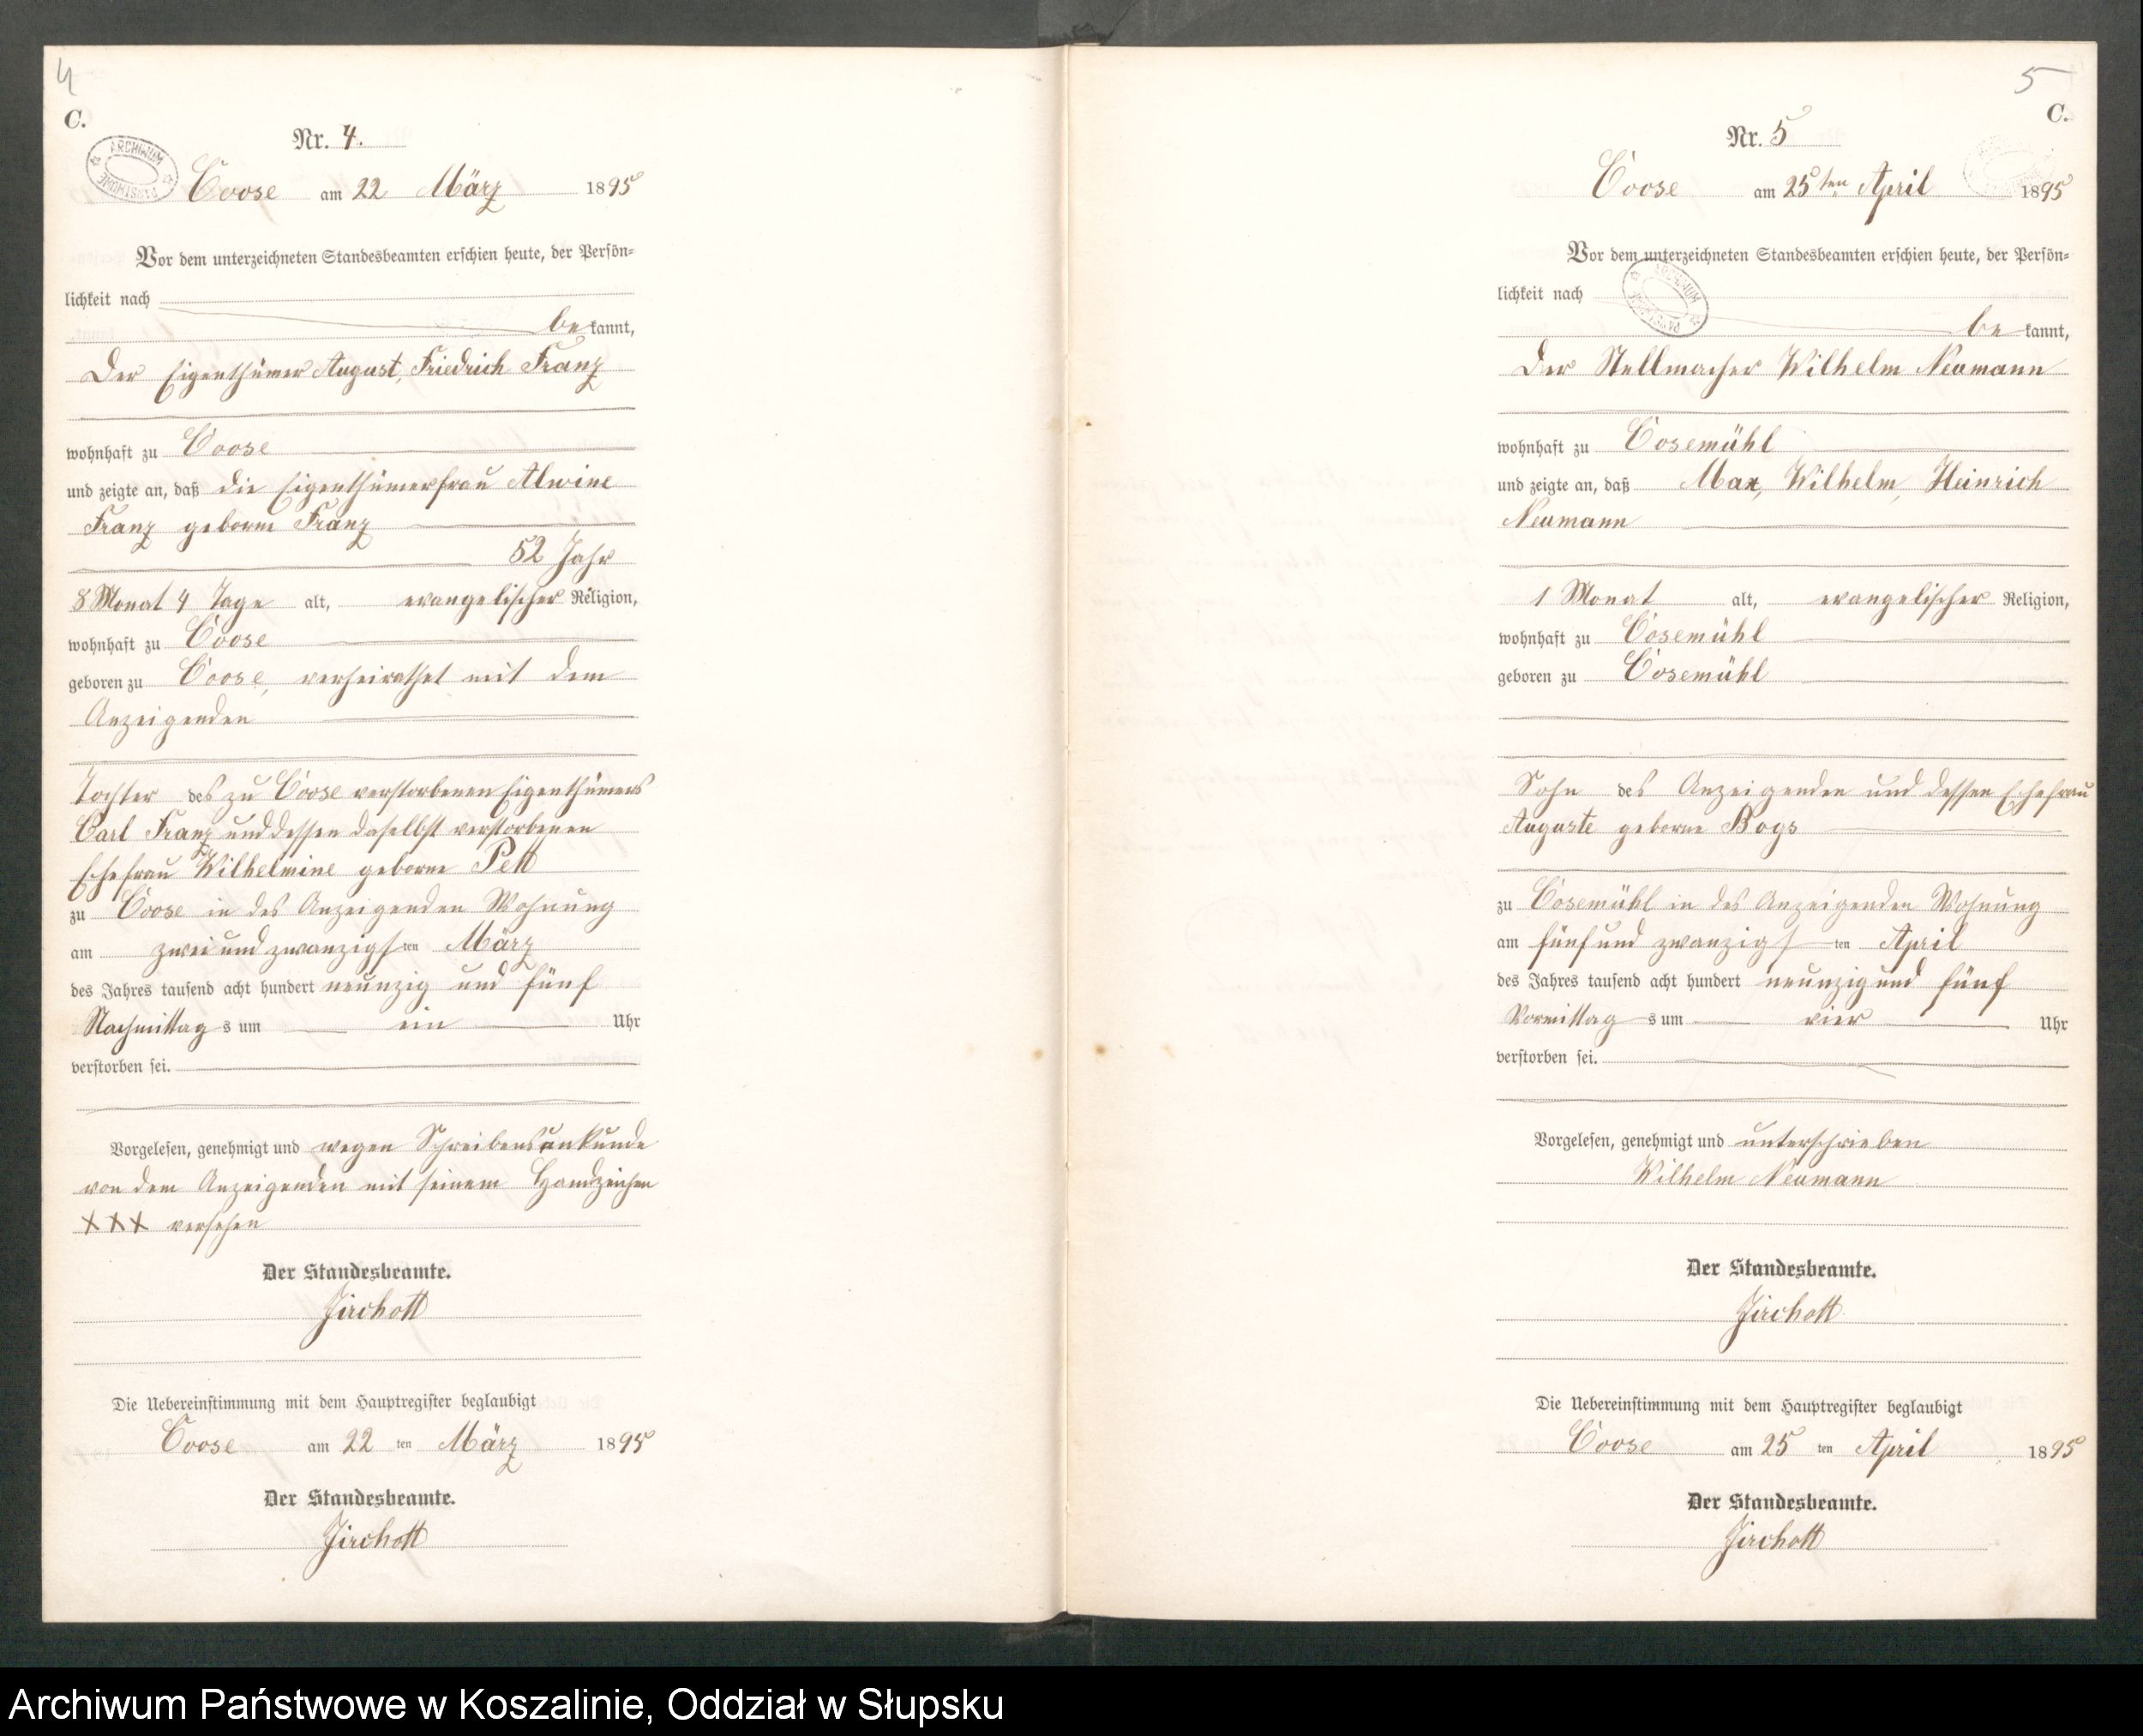 4
C.
Nr. 4.
ARCHIWUM PAŃSTWOWE
Coose am 22 März 1895
Vor dem unterzeichneten Standesbeamten erschien heute, der Persön-
lichkeit nach
be kannt,
Der Eigenthümer August, Friedrich Franz
wohnhaft zu Coose
und zeigte an, daß die Eigenthümerfrau Alwine
Franz geborne Franz
52 Jahr
8 Monat 4 Tage alt, evangelischer Religion,
wohnhaft zu Coose
geboren zu Coose, verheirathet mit dem
Anzeigenden
Tochter des zu Coose verstorbenen Eigenthümers
Carl Franz und dessen daselbst verstorbenen
Ehefrau Wilhelmine geborne Pett
zu Coose in des Anzeigenden Wohnung
am zwei und zwanzigsten März
des Jahres tausend acht hundert neunzig und fünf
Nachmittag s um ein Uhr
verstorben sei.
Vorgelesen, genehmigt und wegen Schreibensunkunde
von dem Anzeigenden mit seinem Handzeichen
XXX versehen
Der Standesbeamte.
Jirchott
Die Uebereinstimmung mit dem Hauptregister beglaubigt
Coose am 22 ten März 1895
Der Standesbeamte.
Jirchott
5
C.
Nr. 5
Coose am 25ten April 1895
Vor dem unterzeichneten Standesbeamten erschien heute, der Persön-
lichkeit nach
ARCHIWUM PAŃSTWOWE
be kannt,
Der Stellmacher Wilhelm Neumann
wohnhaft zu Cosemühl
und zeigte an, daß Max, Wilhelm, Heinrich
Neumann
1 Monat alt, evangelischer Religion,
wohnhaft zu Cosemühl
geboren zu Cosemühl
Sohn des Anzeigenden und dessen Ehefrau
Auguste geborne Bogs
zu Cosemühl in des Anzeigenden Wohnung
am fünf und zwanzigs ten April
des Jahres tausend acht hundert neunzig und fünf
Vormittag s um vier Uhr
verstorben sei.
Vorgelesen, genehmigt und unterschrieben
Wilhelm Neumann
Der Standesbeamte.
Jirchott
Die Uebereinstimmung mit dem Hauptregister beglaubigt
Coose am 25 ten April 1895
Der Standesbeamte.
Jirchott
Archiwum Państwowe w Koszalinie, Oddział w Słupsku